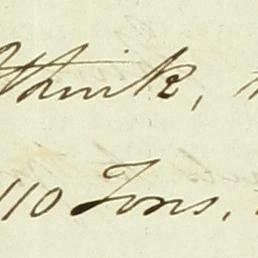 think,
110 Tons,